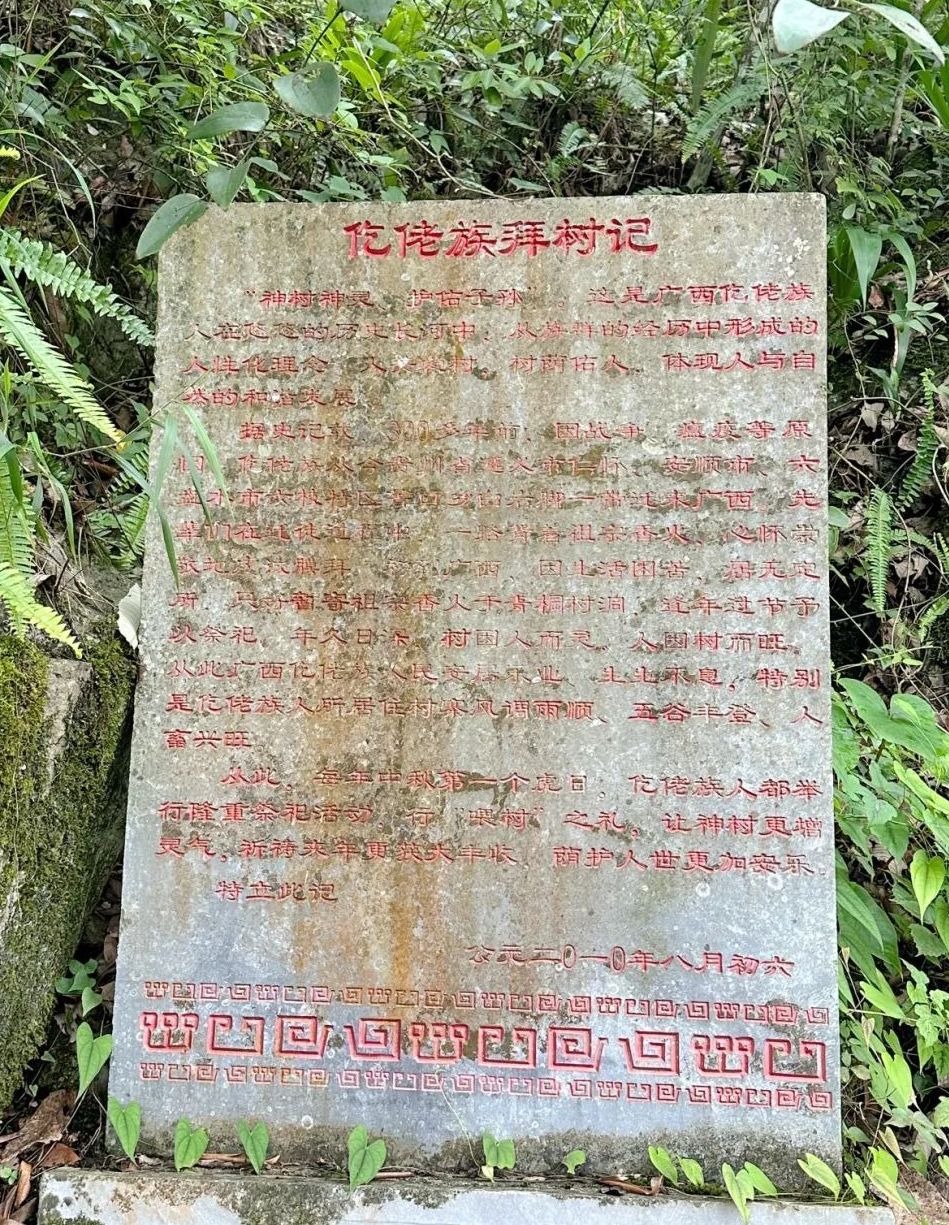 仡佬族拜树记
“神树神灵 护佑子孙”，这是广西仡佬族
人在悠悠的历史长河中，从族群的经历中形成的
人性化理念 人 树，树荫佑人 体现人与自
然的和谐发展
据史记载 多年前，因战争、瘟疫等原
因 仡佬族从今贵州省遵义市仁怀、安顺市、六
盘水市六枝特区 一带迁来广西，先
辈们在迁徙过程中 一路背着祖宗香火，心怀崇
敬 膜拜 广西，因生活困苦，居无定
所，只好留寄祖宗香火于青桐树洞，逢年过节予
以祭祀，年久日 树因人而灵，人因树而旺，
从此广西仡佬族人民安居乐业、生生不息，特别
是仡佬族人所居住村寨风调雨顺、五谷丰登、人
畜兴旺
从此，每年中秋第一个虎日，仡佬族人都举
行隆重祭祀活动 行“喂树”之礼，让神树更增
灵气，祈祷来年更获大丰收 荫护人世更加安乐，
特立此记
公元二0一0年八月初六